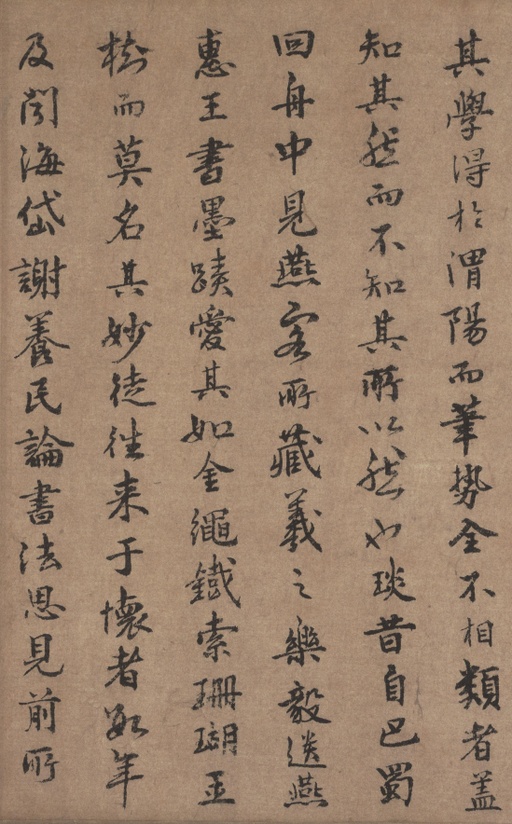 其學得於渭陽而筆勢全不相類者盖
知其然而不知其所以然也琰昔自巴蜀
回舟中見燕客所藏羲之樂毅遺燕
惠王書墨蹟愛其如金繩鐵索珊瑚玉
樹而莫名其妙徒往来于懷者數年
及閱海岱謝養民論書法思見前所